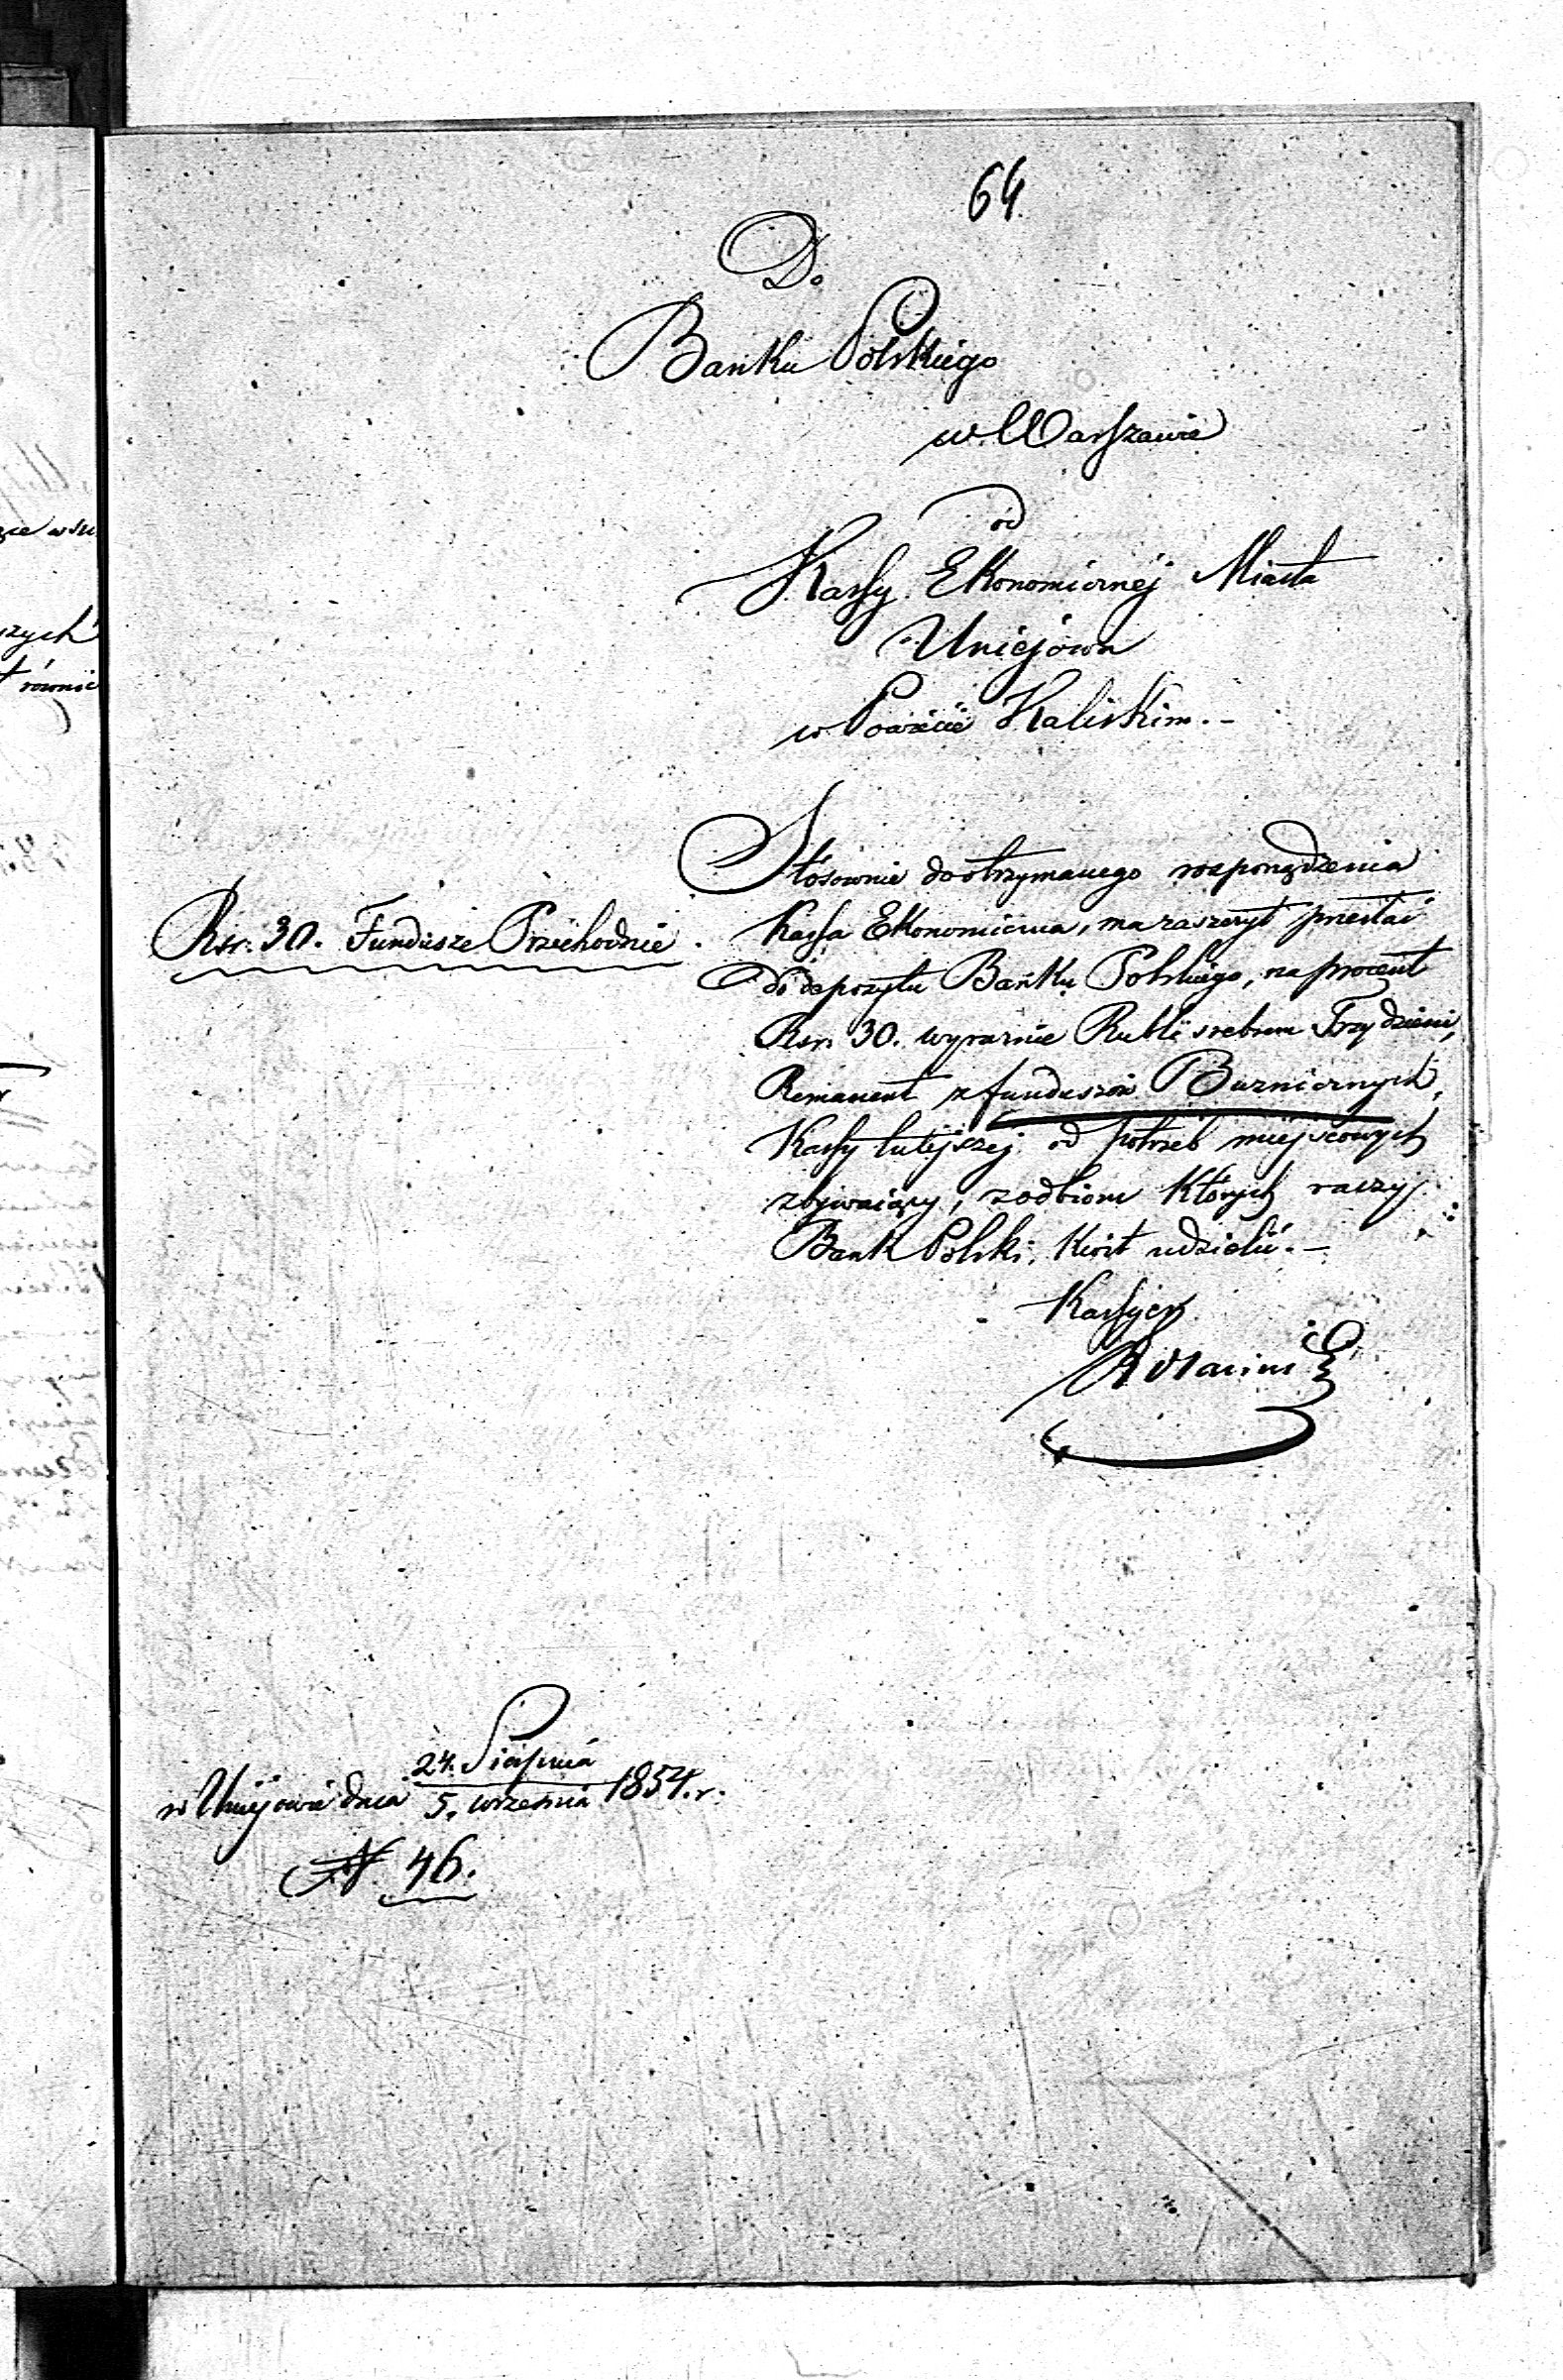 64
Do
Banku Polskiego
w Warszawie
od
Kassy Ekonomicznéj Miasta
Uniejowa
w Powiecie Kaliskim. -
Rsr. 30. Fundusze Przechodnie.
Stósownie do otrzymanego rozporządzenia
Kassa Ekonomiczna, ma zaszczyt przesłać
do depozytu Banku Polskiego, na procent
Rsr. 30. wyraźnie Rubli srebrem Trzydzieści,
Remanent z funduszów Buznicznych,
Kassy tutéjszej od potrzeb miejscowych
zbywaiący, z odbioru których raczy
Bank Polski, Kwit udzielić. -
Kassyer
w Uniejowie dnia 24. Sierpnia
5. września 1854. r.
N. 46.
zych
równie